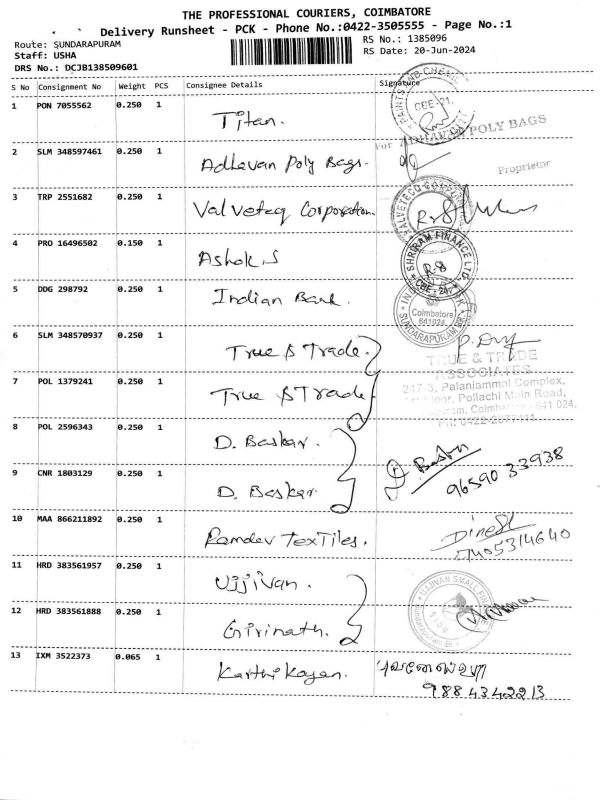 THE PROFESSIONAL COURIERS, COIMBATORE
Delivery Runsheet - PCK - Phone No.:0422-3505555 - Page No.:1
Route: SUNDARAPURAM
RS No.: 1385096
Staff: USHA
RS Date: 20-Jun-2024
DRS No.: DCJB138509601
S No Consignment No Weight PCS Consignee Details Signature
1 PON 7055562 0.250 1 Titan.
PAINTS AND CHEMI
CBE-21.
For ADHAVAN POLY BAGS
2 SLM 348597461 0.250 1 Adhavan Poly Bags.
Proprietor
3 TRP 2551682 0.250 1 Valveteq Corporation.
VALVETEQ CO
4 PRO 16496502 0.150 1 Ashok.S
SHRIRAM FINANCE LTD.
CBE - 24.
5 DDG 298792 0.250 1 Indian Bank.
Coimbatore
641024.
SUNDARAPURAM BR.
6 SLM 348570937 0.250 1 True & Trade.
TRUE & TRADE
ASSOCIATES
7 POL 1379241 0.250 1 True & Trade
247-3, Palaniammal Complex,
Floor, Pollachi Main Road,
Coimbatore - 641 024.
8 POL 2596343 0.250 1 D. Baskar.
9 CNR 1803129 0.250 1 D. Baskar.
Baskar
96590 33938
10 MAA 866211892 0.250 1 Ramdev Textiles.
Dinesh
7405314640
11 HRD 383561957 0.250 1 Ujjivan.
UJJIVAN SMALL FIN
12 HRD 383561888 0.250 1 Girinath.
13 IXM 3522373 0.065 1 Karthikayan.
9884342213